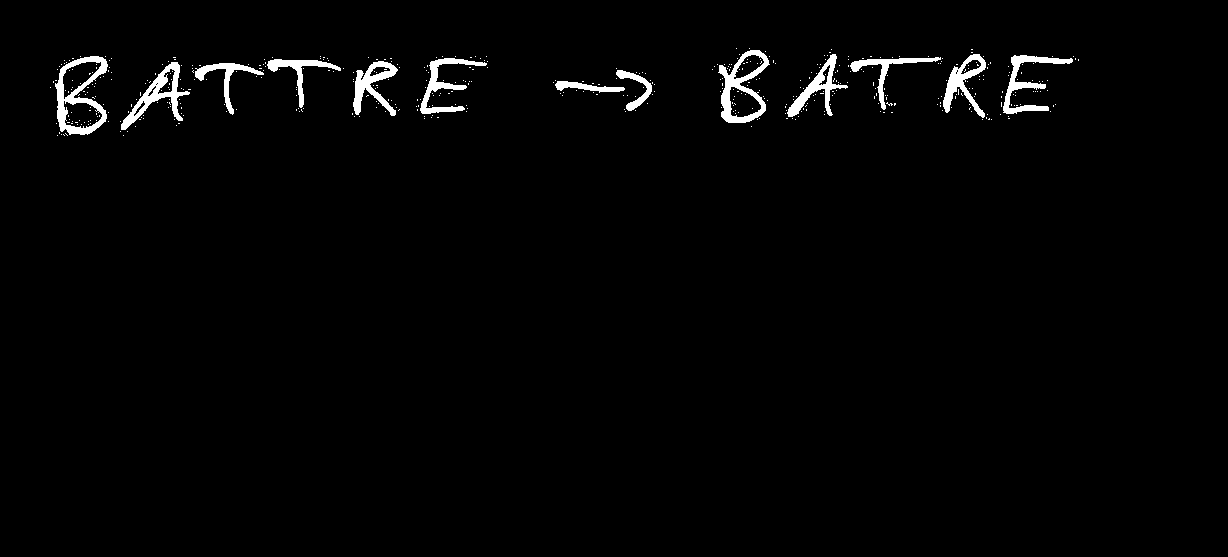 BATTRE → BATRE